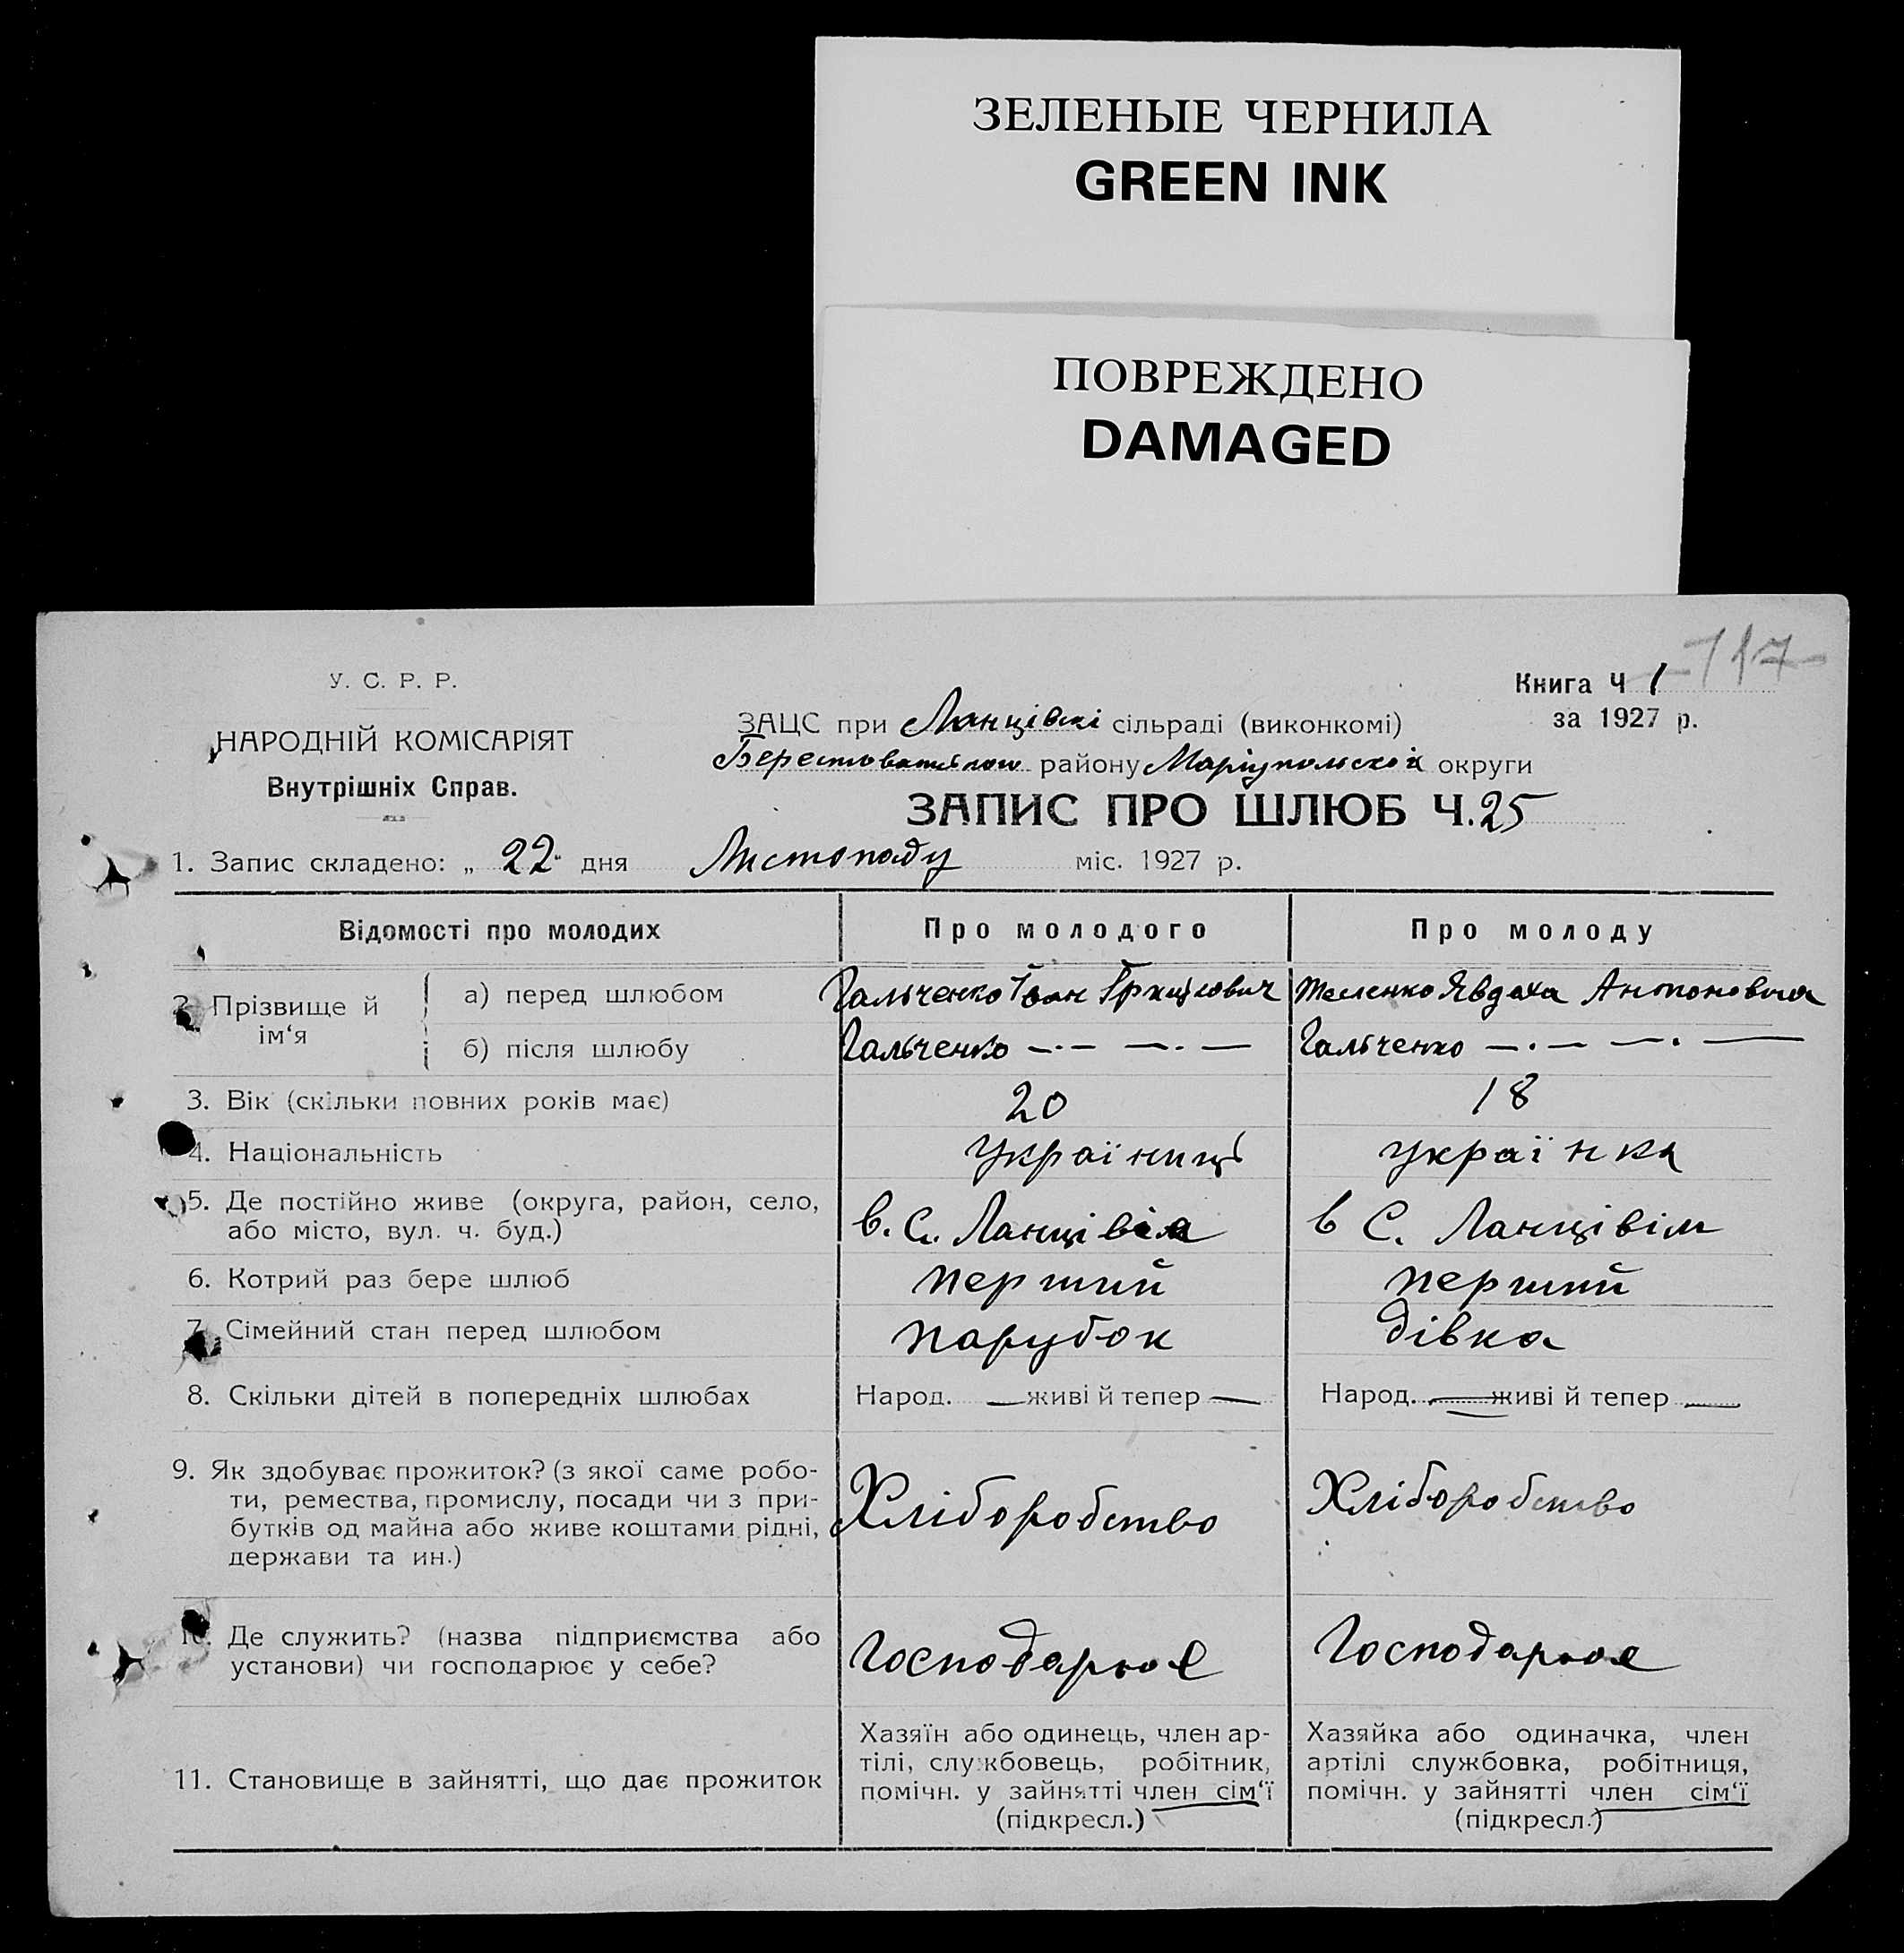 ЗЕЛЕНЫЕ ЧЕРНИЛА
GREEN INK
ПОВРЕЖДЕНО
DAMAGED
-117-
У. С. Р. Р.
НАРОДНІЙ КОМІСАРІЯТ
Внутрішніх Справ.
Книга Ч 1
за 1927 р.
ЗАЦС при Ланцівскі сільраді (виконкомі)
району Маріупольскої округи
ЗАПИС ПРО ШЛЮБ Ч. 25
1. Запис складено: „ 22 " дня Листопаду міс. 1927 р.
Відомості про молодих
Про молодого
Про молоду
2. Прізвище й ім‘я
а) перед шлюбом
Гальченко Іван
Явдаха Антоновна
б) після шлюбу
Гальченко —·— —·—
Гальченко —·— —·—
3. Вік (скільки повних років має)
20
18
4. Національність
Українець
українка
5. Де постійно живе (округа, район, село,
або місто, вул. ч. буд.)
в. С. Ланцівім
в С. Ланцівім
6. Котрий раз бере шлюб
перший
перший
7. Сімейний стан перед шлюбом
парубок
дівка
8. Скільки дітей в попередніх шлюбах
Народ. — живі й тепер —
Народ. — живі й тепер —
9. Як здобуває прожиток? (з якої саме робо-
ти, ремества, промислу, посади чи з при-
бутків од майна або живе коштами рідні,
держави та ин.)
Хліборобство
Хліборобство
10. Де служить? (назва підприємства або
установи) чи господарює у себе?
Господарює
Господарює
11. Становище в зайнятті, що дає прожиток
Хазяїн або одинець, член ар-
тілі, службовець, робітник,
помічн. у зайнятті член сім‘ї
(підкресл.)
Хазяйка або одиначка, член
артілі службовка, робітниця,
помічн. у зайнятті член сім‘ї
(підкресл.)